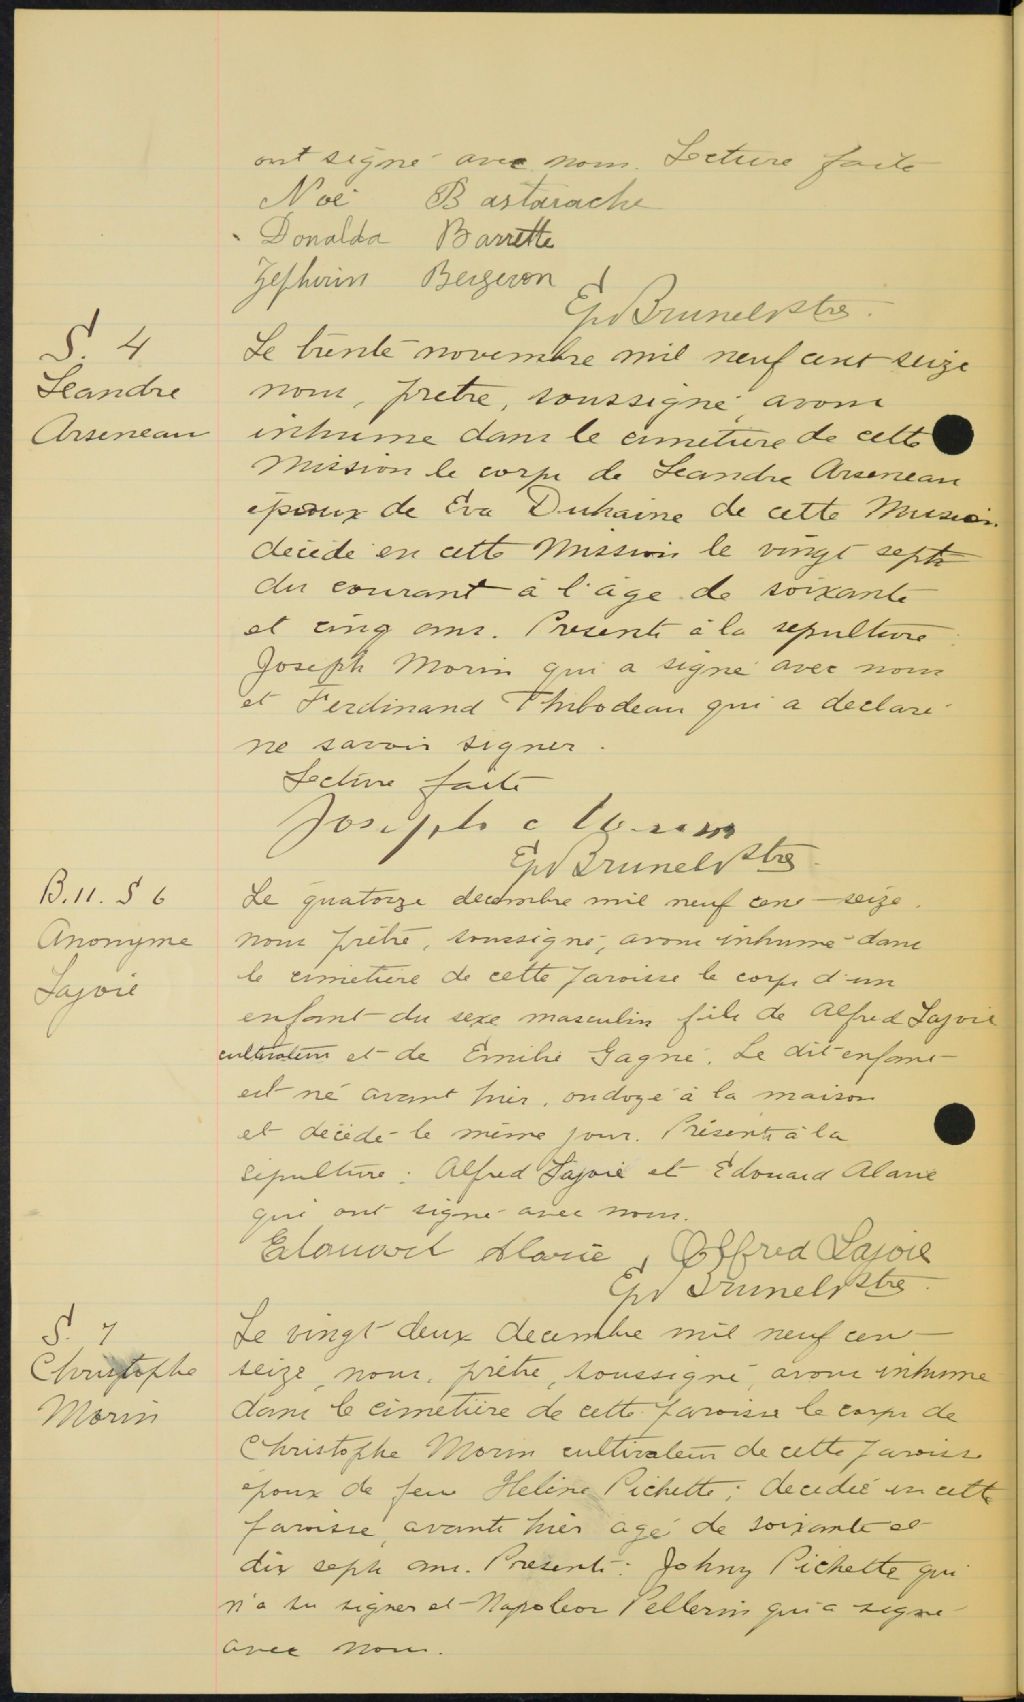 ont signé avec nous. Lecture faite
Noé Bastarache
Donalda Barrette
Zephirin Bergeron
Ep Brunel Ptre.
S. 4
Leandre
Arseneau
Le trente novembre mil neuf cent seize
nous, pretre, soussigné, avons
inhumé dans le cimetière de cette
Mission le corps de Leandre Arseneau
époux de Eva Duhaine de cette Mission
décédé en cette Mission le vingt sept
du courant à l'âge de soixante
et cinq ans. Presents à la sepulture
Joseph Morin qui a signé avec nous
et Ferdinand Thibodeau qui a declaré
ne savoir signer.
Lecture faite
Joseph Morin
Ep Brunel Ptre.
B. 11. S 6
Anonyme
Lajoie
Le quatorze decembre mil neuf cent-seize.
nous prêtre, soussigné, avons inhumé dans
le cimetière de cette paroisse le corps d'un
enfant du sexe masculin fils de Alfred Lajoie
cultivateur et de Emilie Gagné. Le dit enfant
est né avant hier, ondoyé à la maison
et décédé le même jour. Présents à la
sépulture: Alfred Lajoie et Edouard Alarie
qui ont signé avec nous.
Edouard Alarie, Alfred Lajoie
Ep Brunel Ptre.
S. 7
Christophe
Morin
Le vingt deux decembre mil neuf cent
seize, nous, prêtre, soussigné, avons inhumé
dans le cimetière de cette paroisse le corps de
Christophe Morin cultivateur de cette paroisse
époux de feue Heline Pichette; decedé en cette
paroisse, avant hier agé de soixante et
dix sept ans. Presents: Johny Pichette qui
n'a su signer et Napoleon Pellerin qui a signé
avec nous.